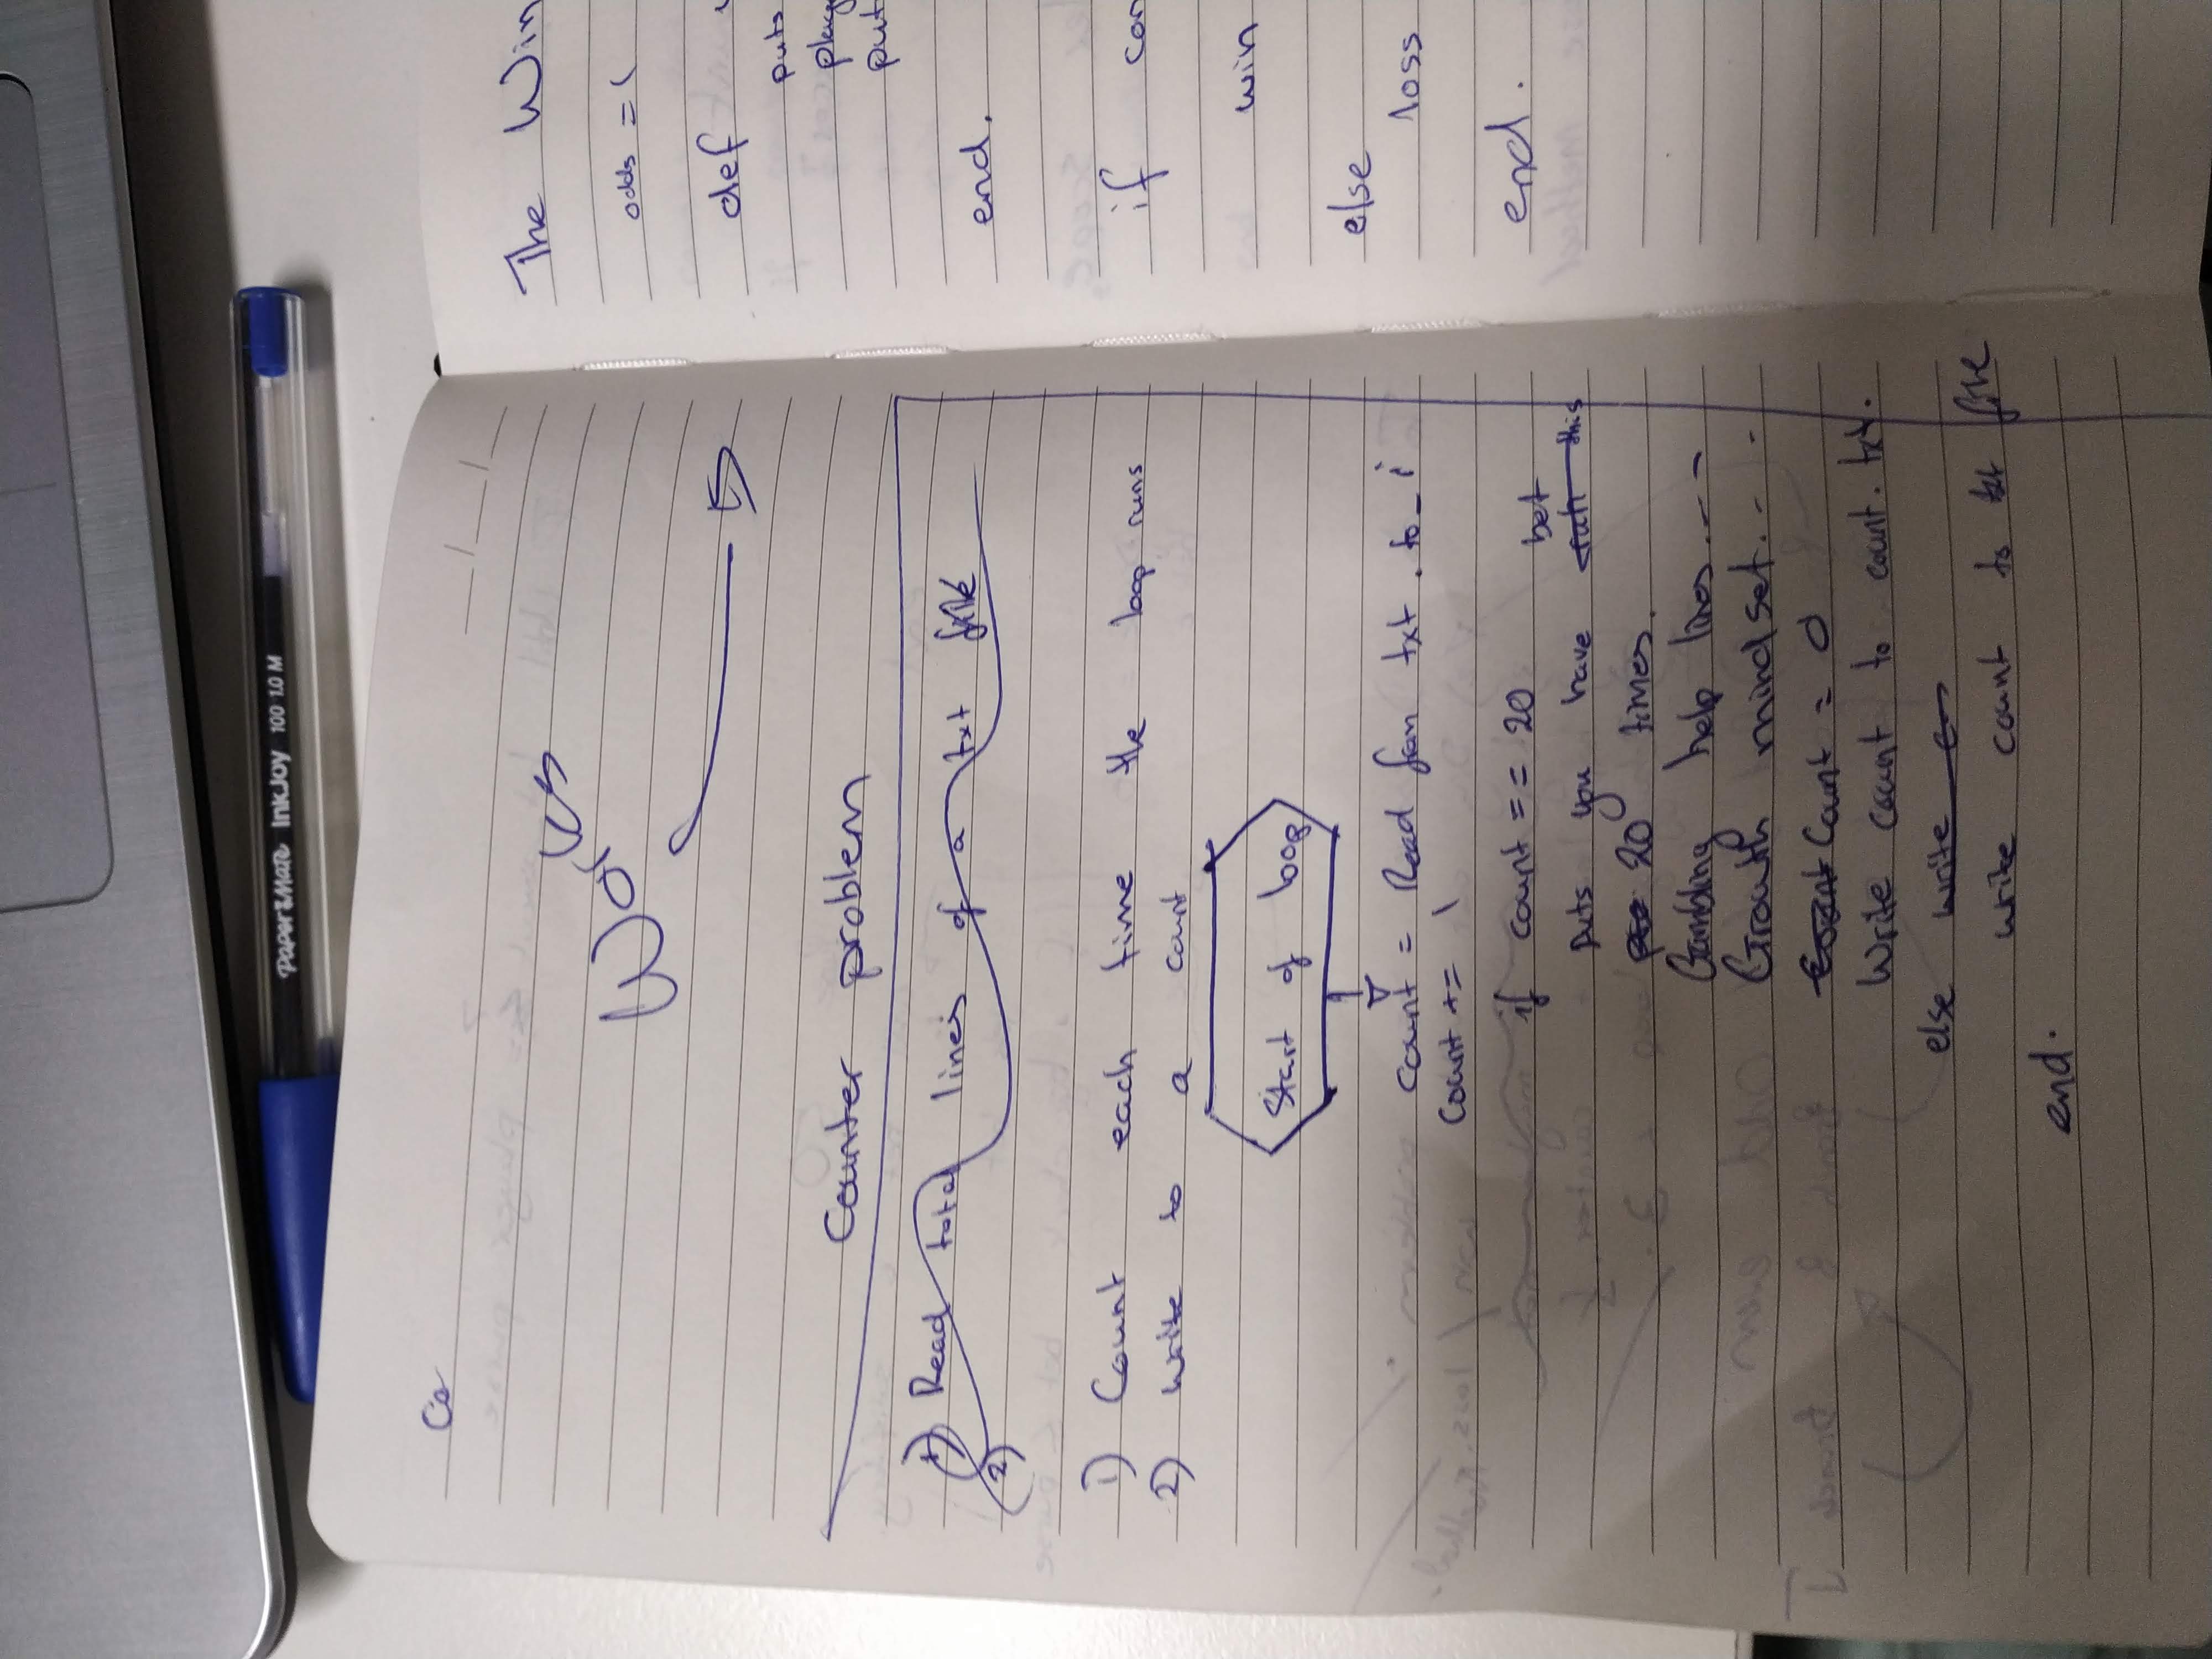 Co
Works
Counter problem
1) Read total lines of a txt file
2)
1) Count each time the loop runs
2) write to a count
Start of loop
count = Read from txt . to_i
count += 1
if count == 20
bet
puts you have this
20 times.
Gambling help lines - - -
Growth mindset. - -
Count = 0
Write count to count.txt.
else write
write count to txt file
end.
The Win
odds = (
def
puts
play
put
end.
if con
win
else
loss
end.
PaperMate InkJoy 100 1.0 M